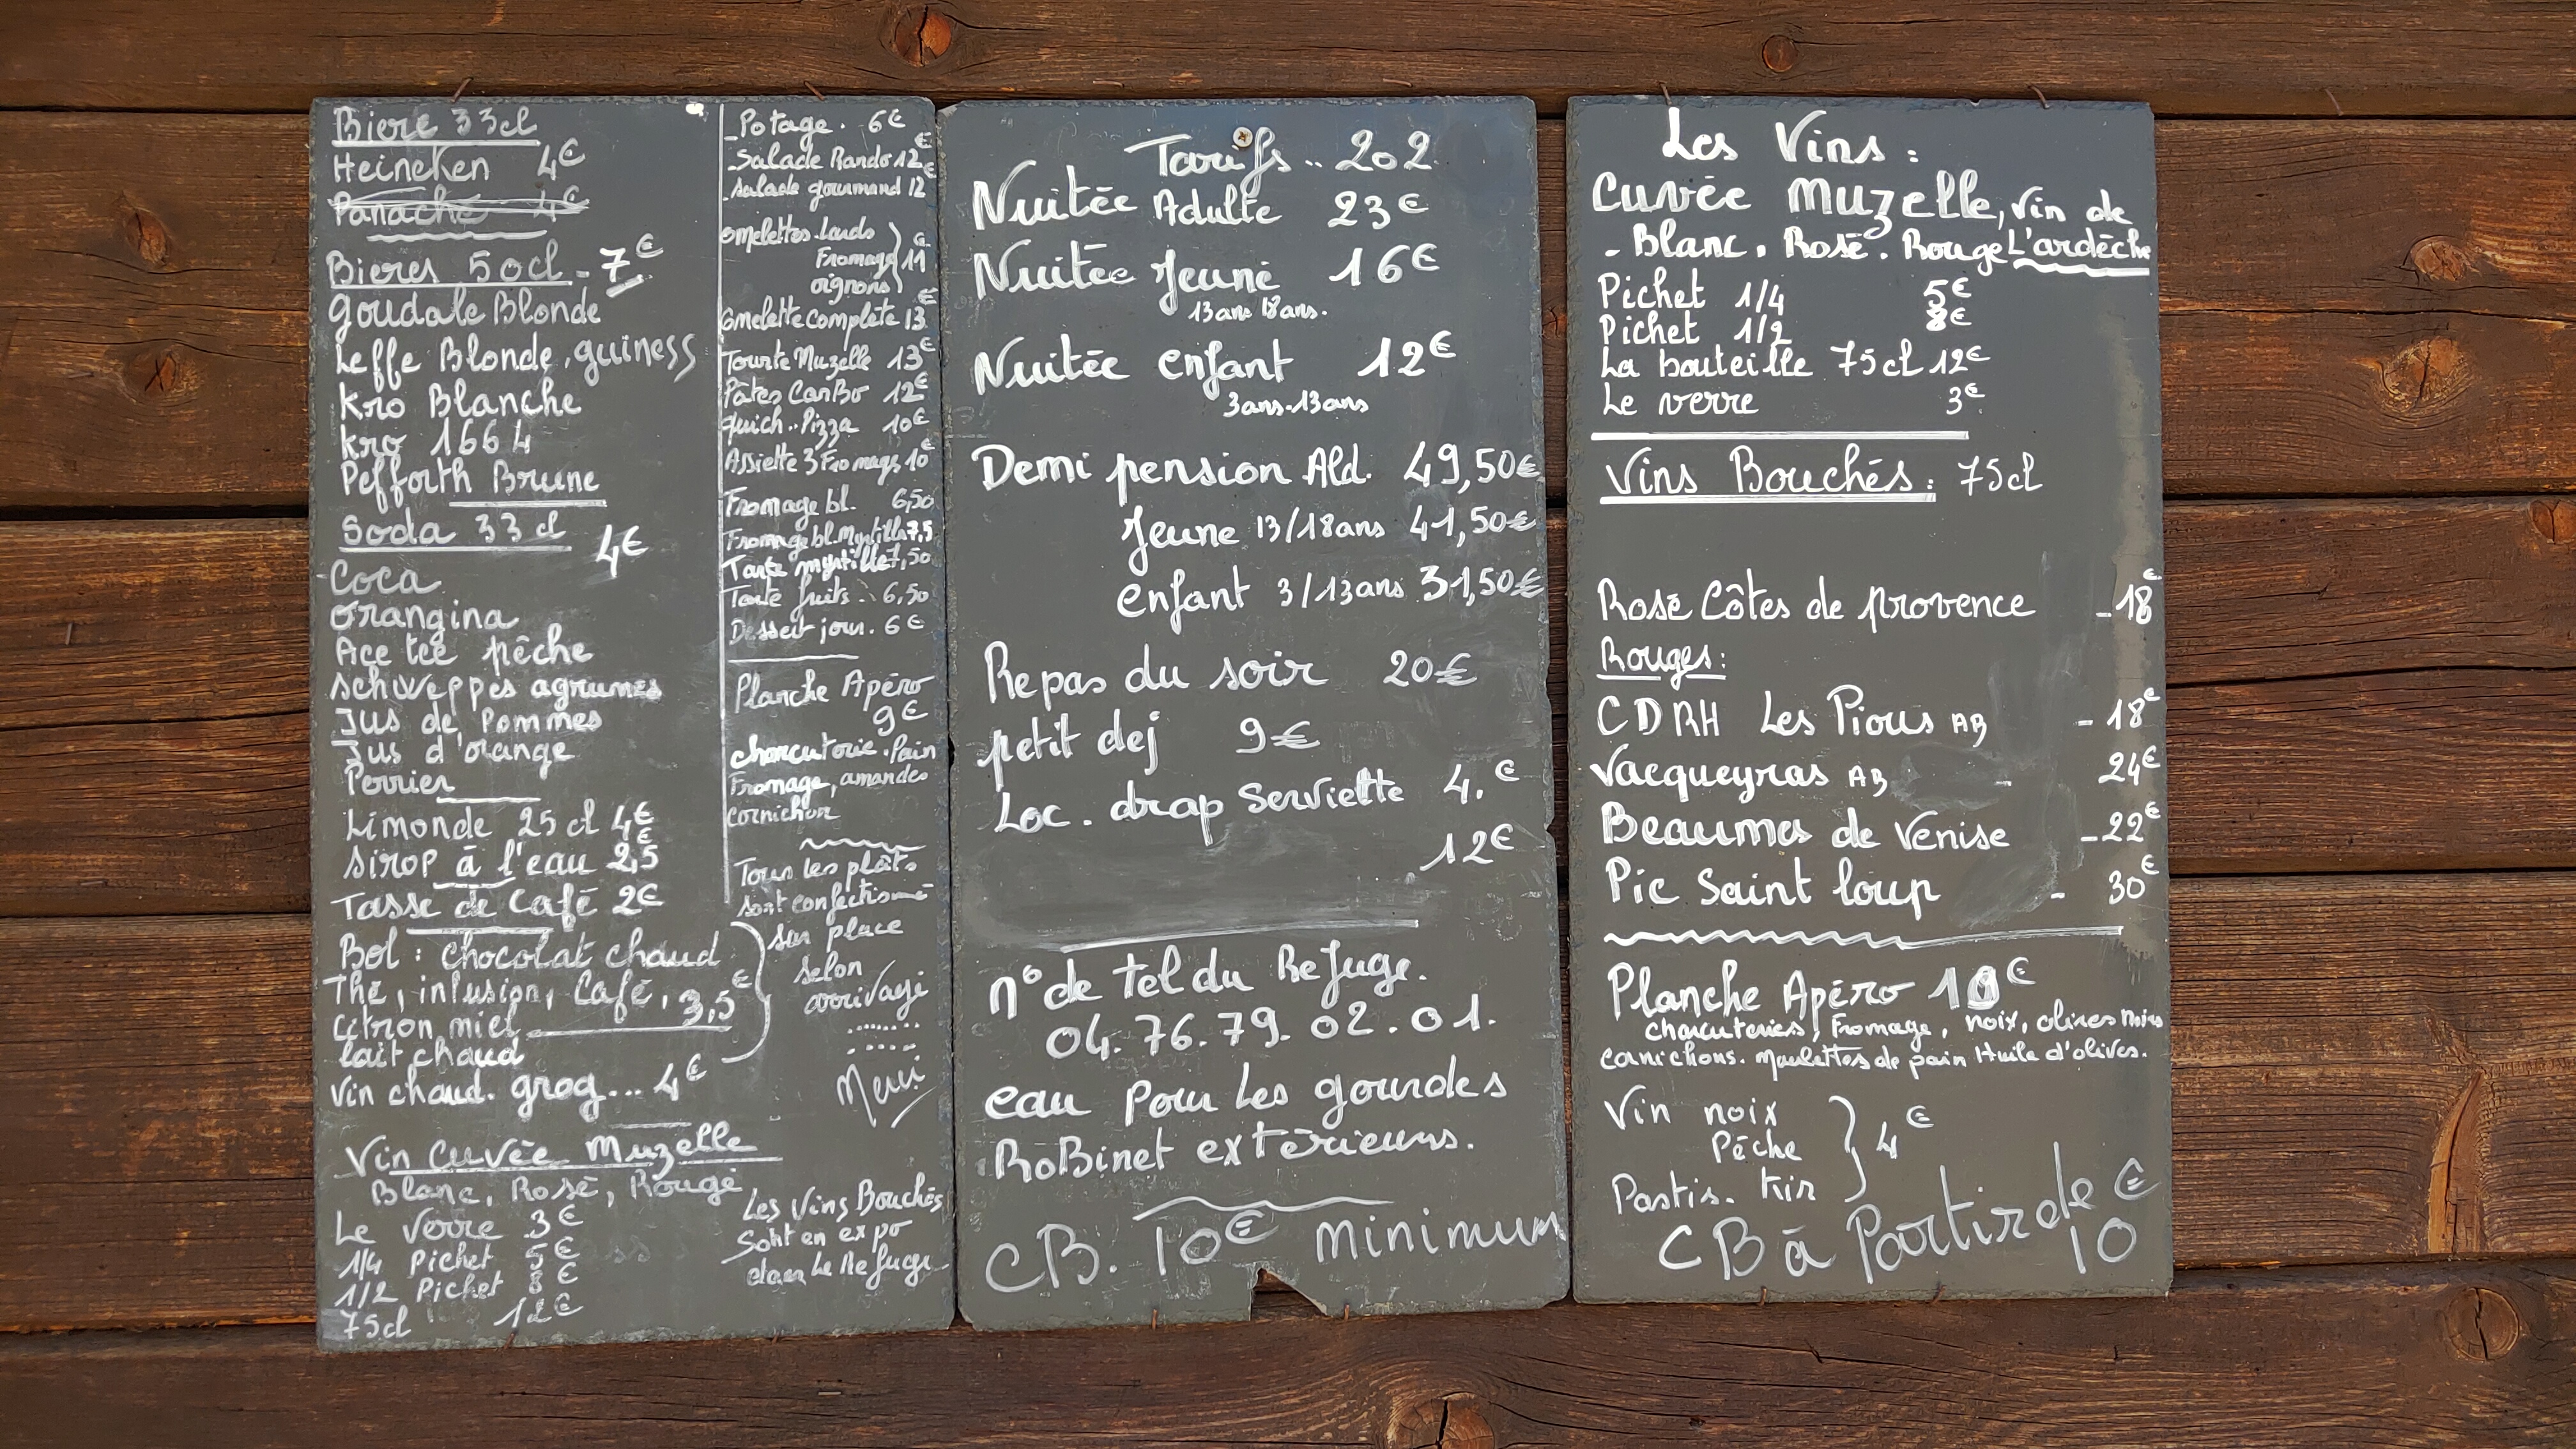 Biere 33cl
Heineken 4€
Panaché 4€
Bieres 50cl - 7€
goudale Blonde
Leffe Blonde, guiness
Kro Blanche
Kro 1664
Pefforth Brune
Soda 33cl 4€
Coca
orangina
Ace tee pêche
schweppes agrumes
Jus de Pommes
Jus d'orange
Perrier
Limonde 25cl 4€
sirop à l'eau 2,5€
Tasse de Café 2€
Bol : chocolat chaud
Thé, infusion, Café, 3,5€
citron miel
lait chaud
Vin chaud. grog... 4€
Vin Cuvée Muzelle
Blanc, Rosé, Rouge
Le verre 3€
1/4 Pichet 5€
1/2 Pichet 8€
75cl 12€
- Potage. 6€
- Salade Rando 12€
- salade gourmand 12€
omelettes lards
Fromage 11€
oignons
Omelette complete 13€
Tourte Muzelle 13€
Pâtes CarBo 12€
quich.. Pizza 10€
Assiette 3 Fromages 10€
Fromage bl. 6,50
Fromage bl. Myrtille 7,5
Tarte myrtille 7,50
Tarte fruits. 6,50
Dessert jour. 6€
Planche Apéro
9€
charcuterie. Pain
Fromage, amandes
cornichon
Tous les plâts
sont confectionné
sur place
selon
arrivage
Merci
Les Vins Bouchés
Sont en expo
dans Le Refuge
Tarifs .. 202
Nuitée Adulte 23€
Nuitée Jeune 16€
13ans 18ans.
Nuitée enfant 12€
3ans-13ans
Demi pension Ald. 49,50€
Jeune 13/18ans 41,50€
enfant 3/13ans 31,50€
Repas du soir 20€
petit dej 9€
Loc. drap Serviette 4.€
12€
n° de tel du Refuge.
04.76.79.02.01.
eau pour Les gourdes
RoBinet extèrieurs.
CB. 10€ Minimum
Les Vins :
Cuvée Muzelle, Vin de
- Blanc. Rosé. Rouge L'ardèche
Pichet 1/4 5€
Pichet 1/2 8€
La bouteille 75cl 12€
Le verre 3€
Vins Bouchés : 75cl
Rosé Côtes de provence - 18€
Rouges :
CDRH Les Pious AB - 18€
Vacqueyras AB - 24€
Beaumes de Venise - 22€
Pic Saint Loup - 30€
Planche Apéro 10€
charcuteries, Fromage, noix, olives noires
cornichons. Mouillettes de pain Huile d'olives.
Vin noix
Pêche 4€
Pastis. Kir
CB à Partir de
10€